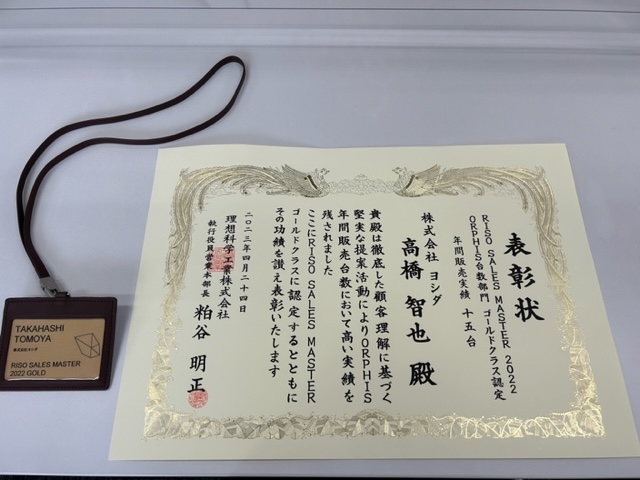 表彰状
RISO SALES MASTER 2022
ORPHIS台数部門 ゴールドクラス認定
年間販売実績 十五台
株式会社 ヨシダ
高橋 智也 殿
貴殿は徹底した顧客理解に基づく
堅実な提案活動によりORPHIS
年間販売台数において高い実績を
残されました
ここにRISO SALES MASTER
ゴールドクラスに認定するとともに
その功績を讃え表彰いたします
二〇二三年四月二十四日
理想科学工業株式会社
執行役員営業本部長 粕谷 明正
TAKAHASHI
TOMOYA
株式会社ヨシダ
RISO SALES MASTER
2022 GOLD